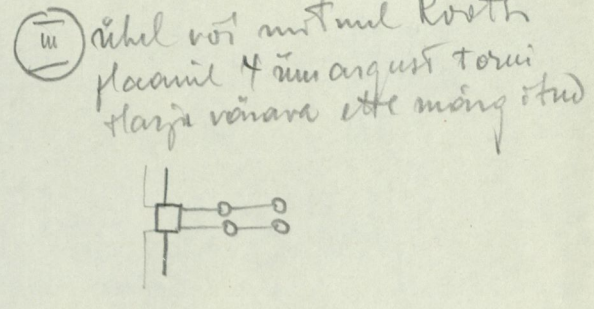 III ühel või mitmel Kooth
plaanil 4 ümargust torni
Harju värava ette märgitud